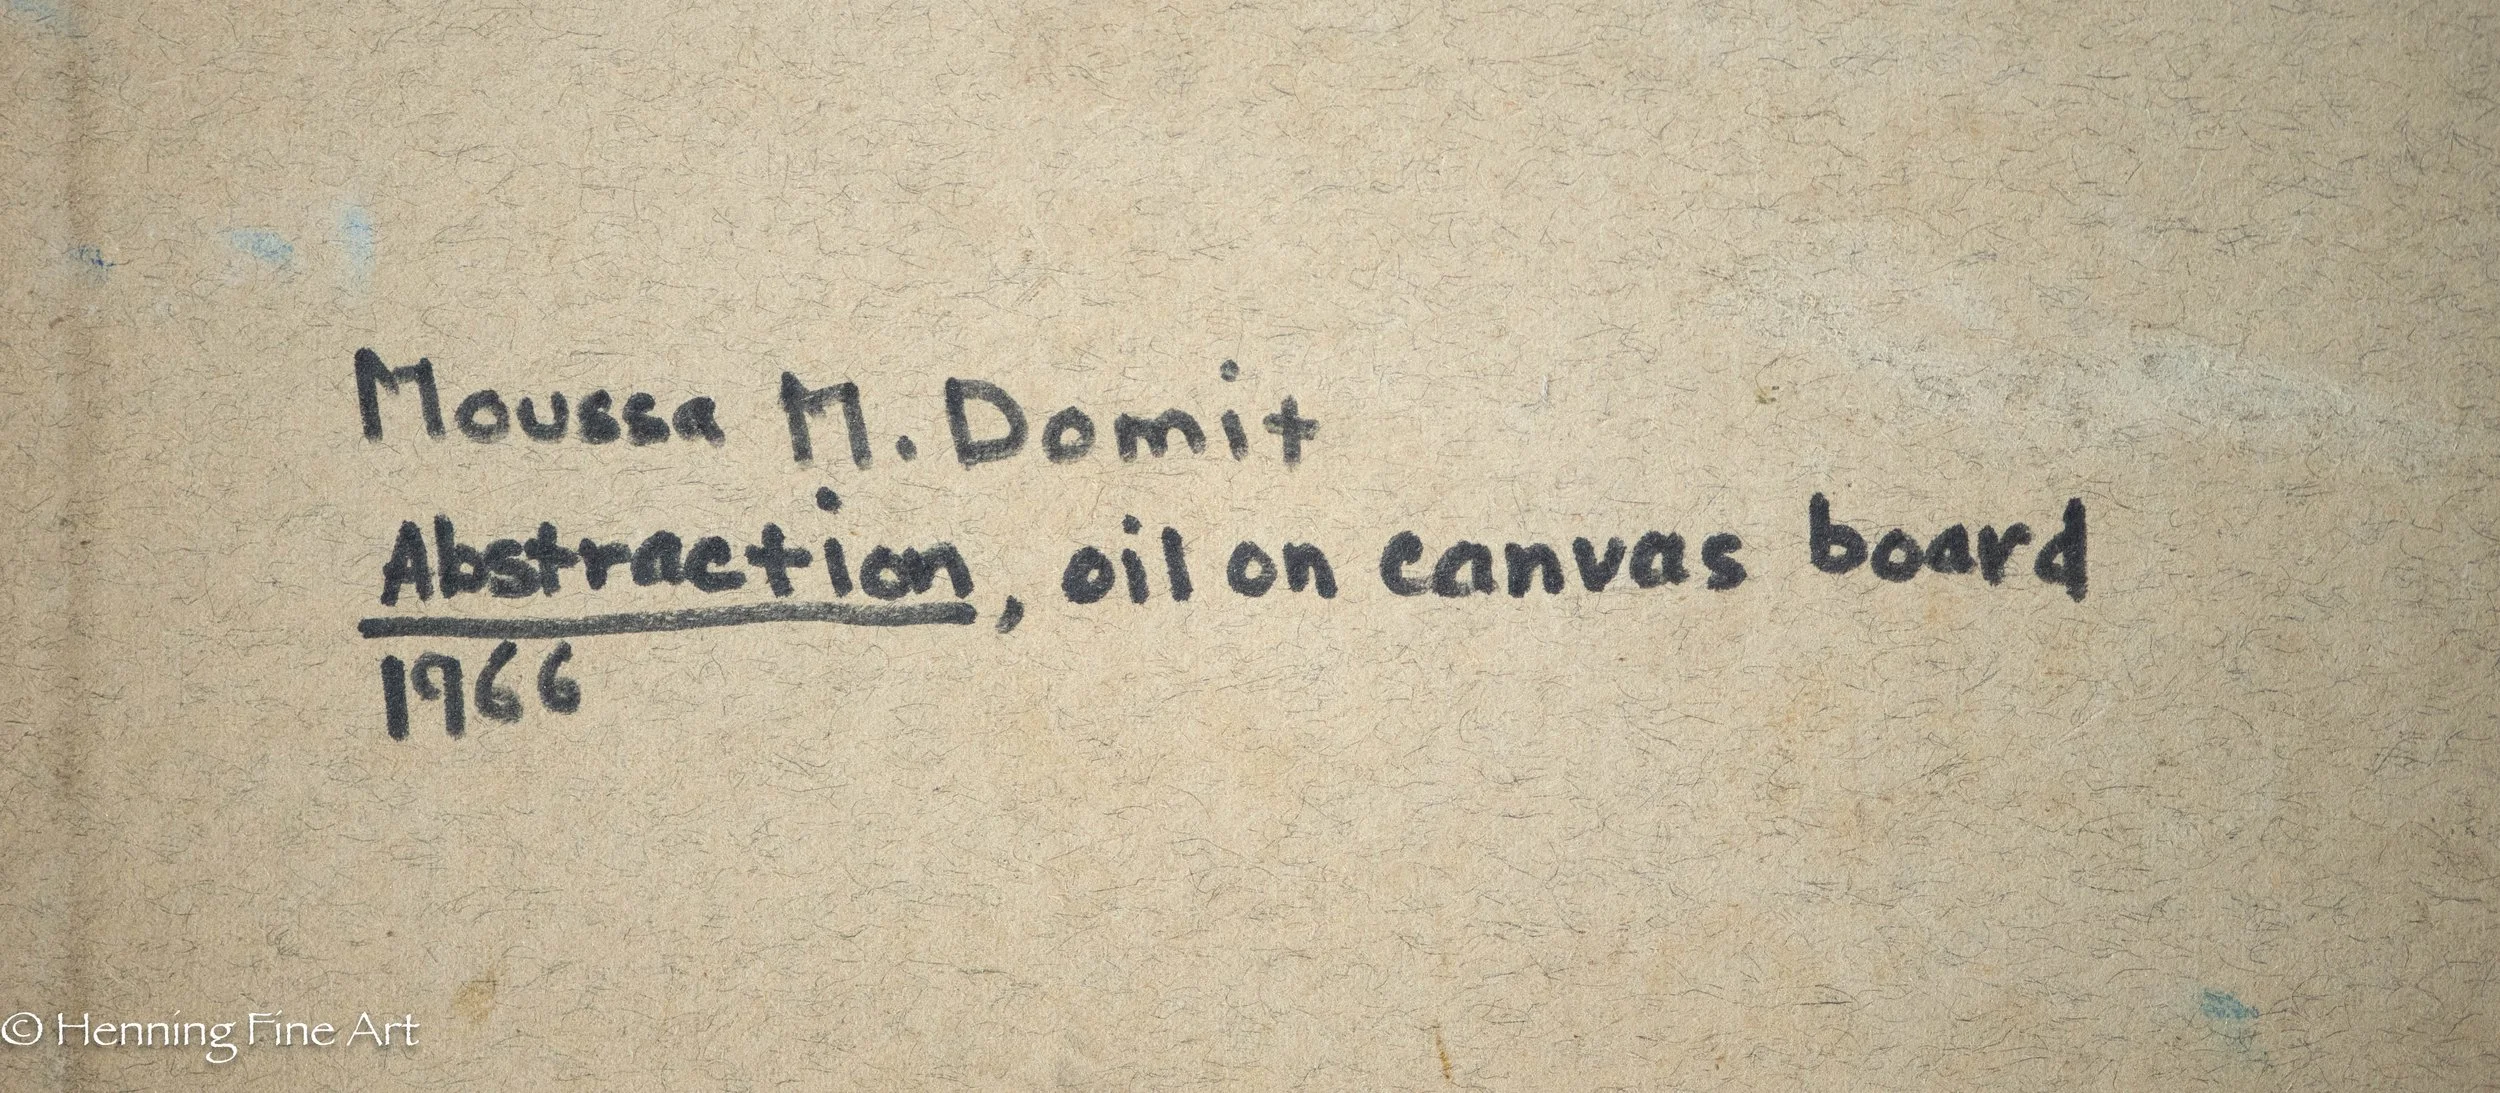 Moussa M. Domit
Abstraction, oil on canvas board
1966
© Henning Fine Art